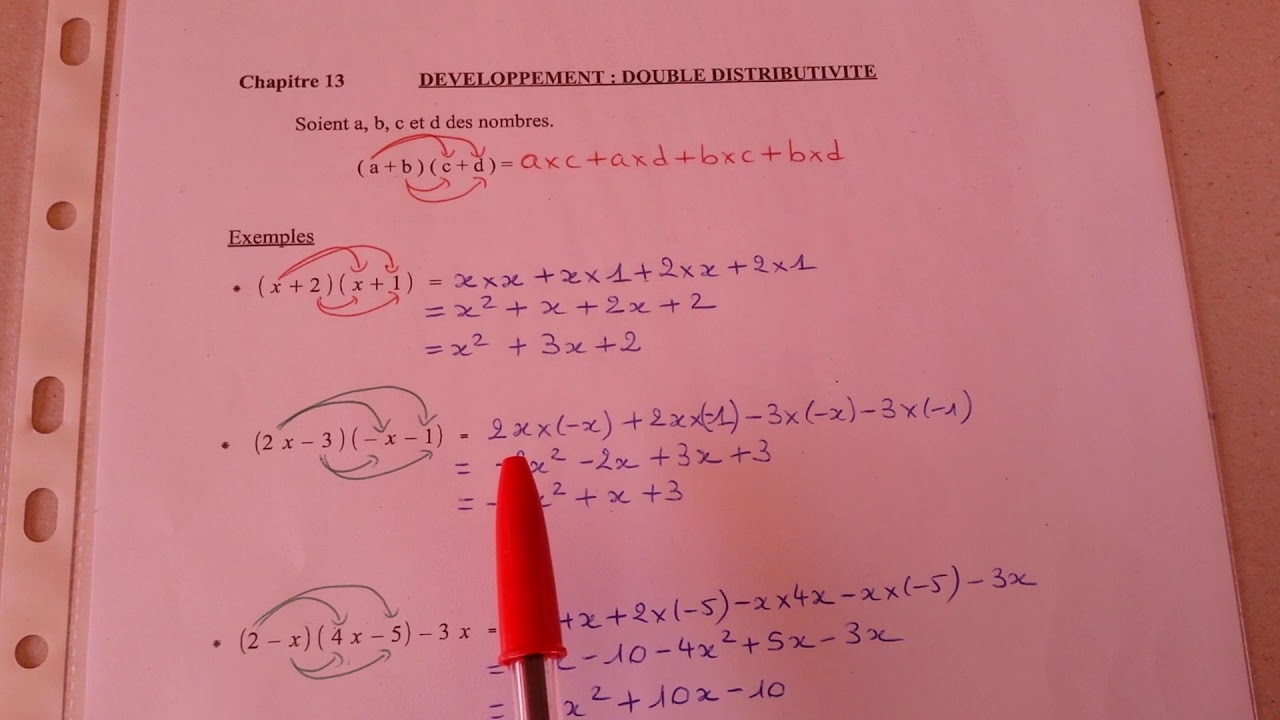 Chapitre 13 DEVELOPPEMENT : DOUBLE DISTRIBUTIVITE
Soient a, b, c et d des nombres.
(a+b)(c+d)= a×c+a×d+b×c+b×d
Exemples
• (x+2)(x+1) = x×x+x×1+2×x+2×1
= x²+x+2x+2
= x²+3x+2
• (2x−3)(−x−1) = 2x×(−x)+2x×(−1)−3×(−x)−3×(−1)
= x²−2x+3x+3
= x²+x+3
• (2−x)(4x−5)−3x = x+2×(−5)−x×4x−x×(−5)−3x
= −10−4x²+5x−3x
= x²+10x−10